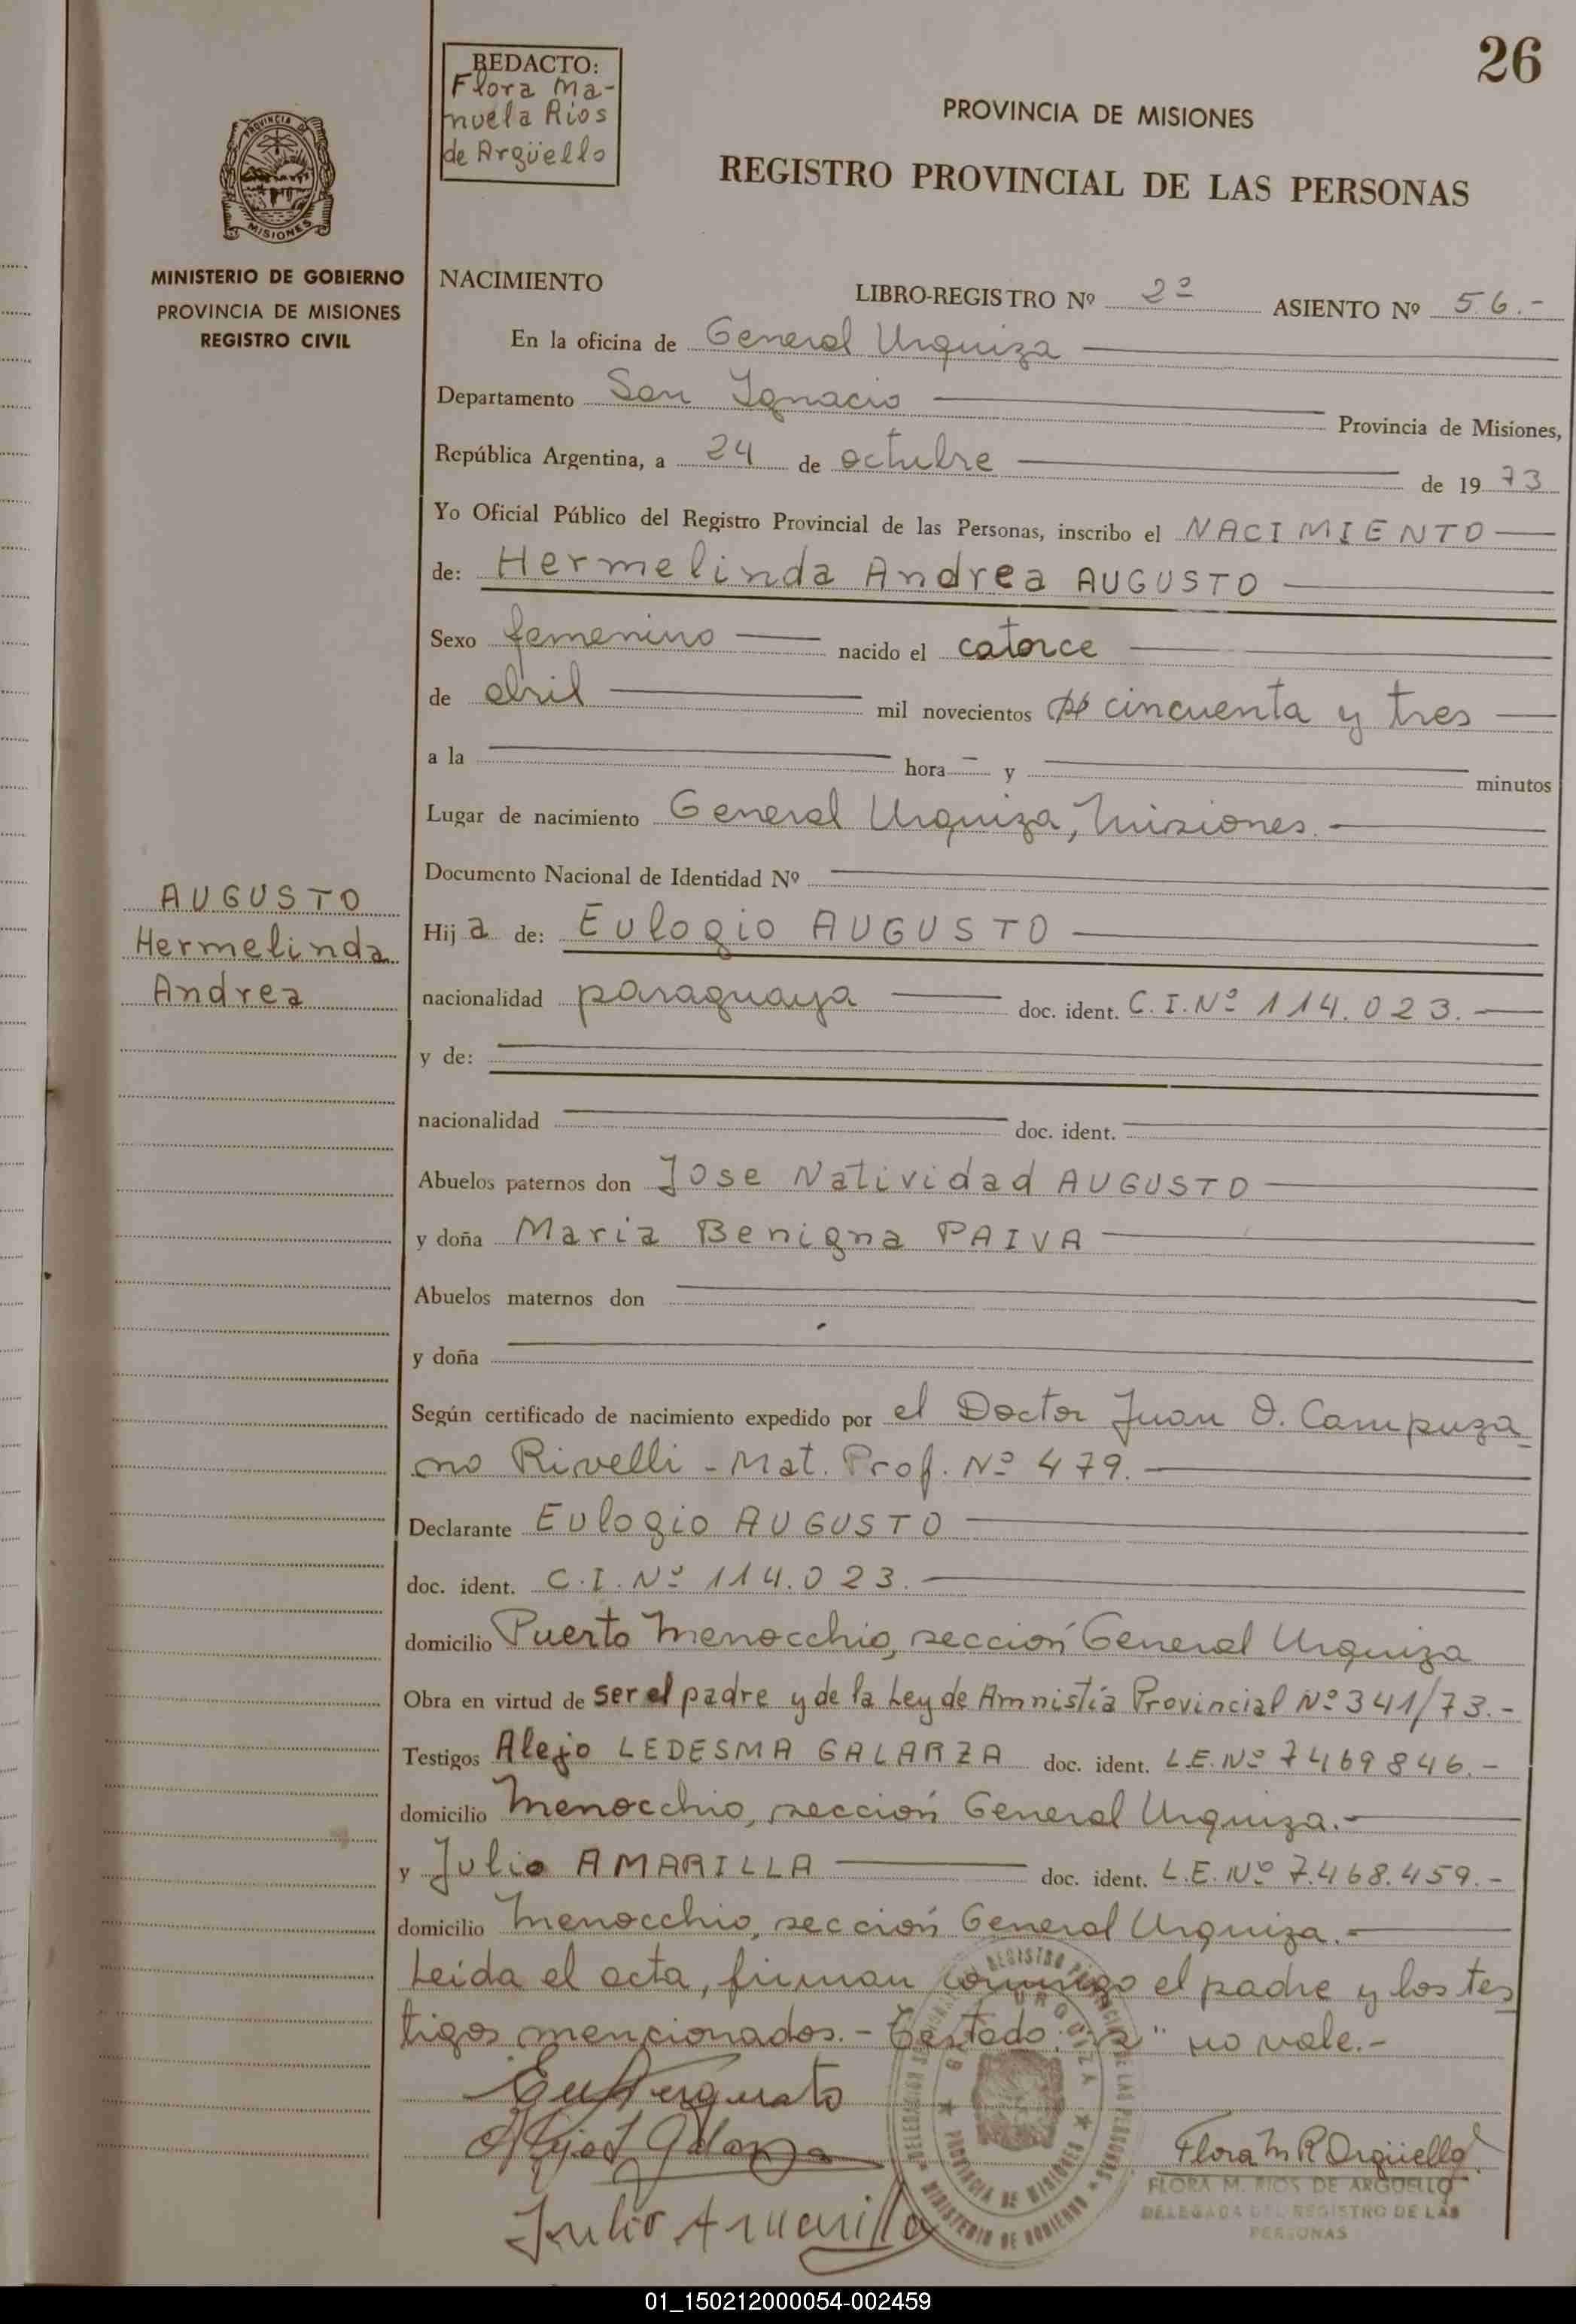 26
REDACTO:
Flora Ma-
nuela Rios
de Argüello
PROVINCIA DE MISIONES
REGISTRO PROVINCIAL DE LAS PERSONAS
PROVINCIA DE
MISIONES
MINISTERIO DE GOBIERNO
PROVINCIA DE MISIONES
REGISTRO CIVIL
NACIMIENTO
LIBRO-REGISTRO Nº 2º ASIENTO Nº 56.-
En la oficina de General Urquiza
Departamento San Ignacio Provincia de Misiones,
República Argentina, a 24 de octubre de 1973
Yo Oficial Público del Registro Provincial de las Personas, inscribo el NACIMIENTO
de: Hermelinda Andrea AUGUSTO
Sexo femenino nacido el catorce
de abril mil novecientos cincuenta y tres
a la hora - y minutos
Lugar de nacimiento General Urquiza, Misiones.
Documento Nacional de Identidad Nº
AUGUSTO
Hermelinda
Andrea
Hija de: Eulogio AUGUSTO
nacionalidad paraguaya doc. ident. C.I.Nº 114.023.
y de:
nacionalidad doc. ident.
Abuelos paternos don Jose Natividad AUGUSTO
y doña Maria Benigna PAIVA
Abuelos maternos don
y doña
Según certificado de nacimiento expedido por el Doctor Juan O. Campuza
no Rivelli - Mat. Prof. Nº 479.
Declarante Eulogio AUGUSTO
doc. ident. C.I.Nº 114.023.
domicilio Puerto Menocchio, sección General Urquiza
Obra en virtud de ser el padre y de la Ley de Amnistía Provincial Nº 341/73.-
Testigos Alejo LEDESMA GALARZA doc. ident. L.E.Nº 7469846.-
domicilio Menocchio, sección General Urquiza.-
y Julio AMARILLA doc. ident. L.E.Nº 7.468.459.-
domicilio Menocchio, sección General Urquiza.-
Leida el acta, firman conmigo el padre y los tes
tigos mencionados.- Testado: " no vale.-
Augusto
Alejo L Galarza
Julio Amarilla
Flora M R Argüello
FLORA M. RIOS DE ARGÜELLO
DELEGADA DEL REGISTRO DE LAS
PERSONAS
PROVINCIA DE MISIONES
MINISTERIO DE GOBIERNO
01_150212000054-002459